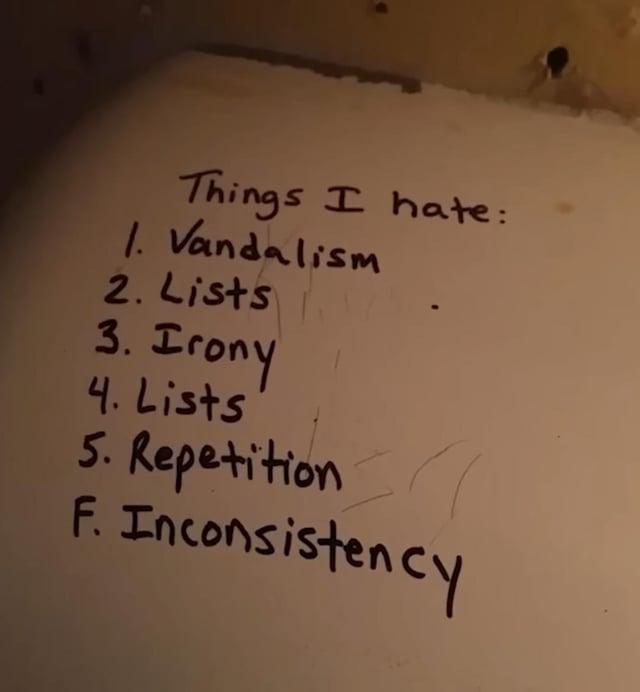 Things I hate:
1. Vandalism
2. Lists
3. Irony
4. Lists
5. Repetition
F. Inconsistency